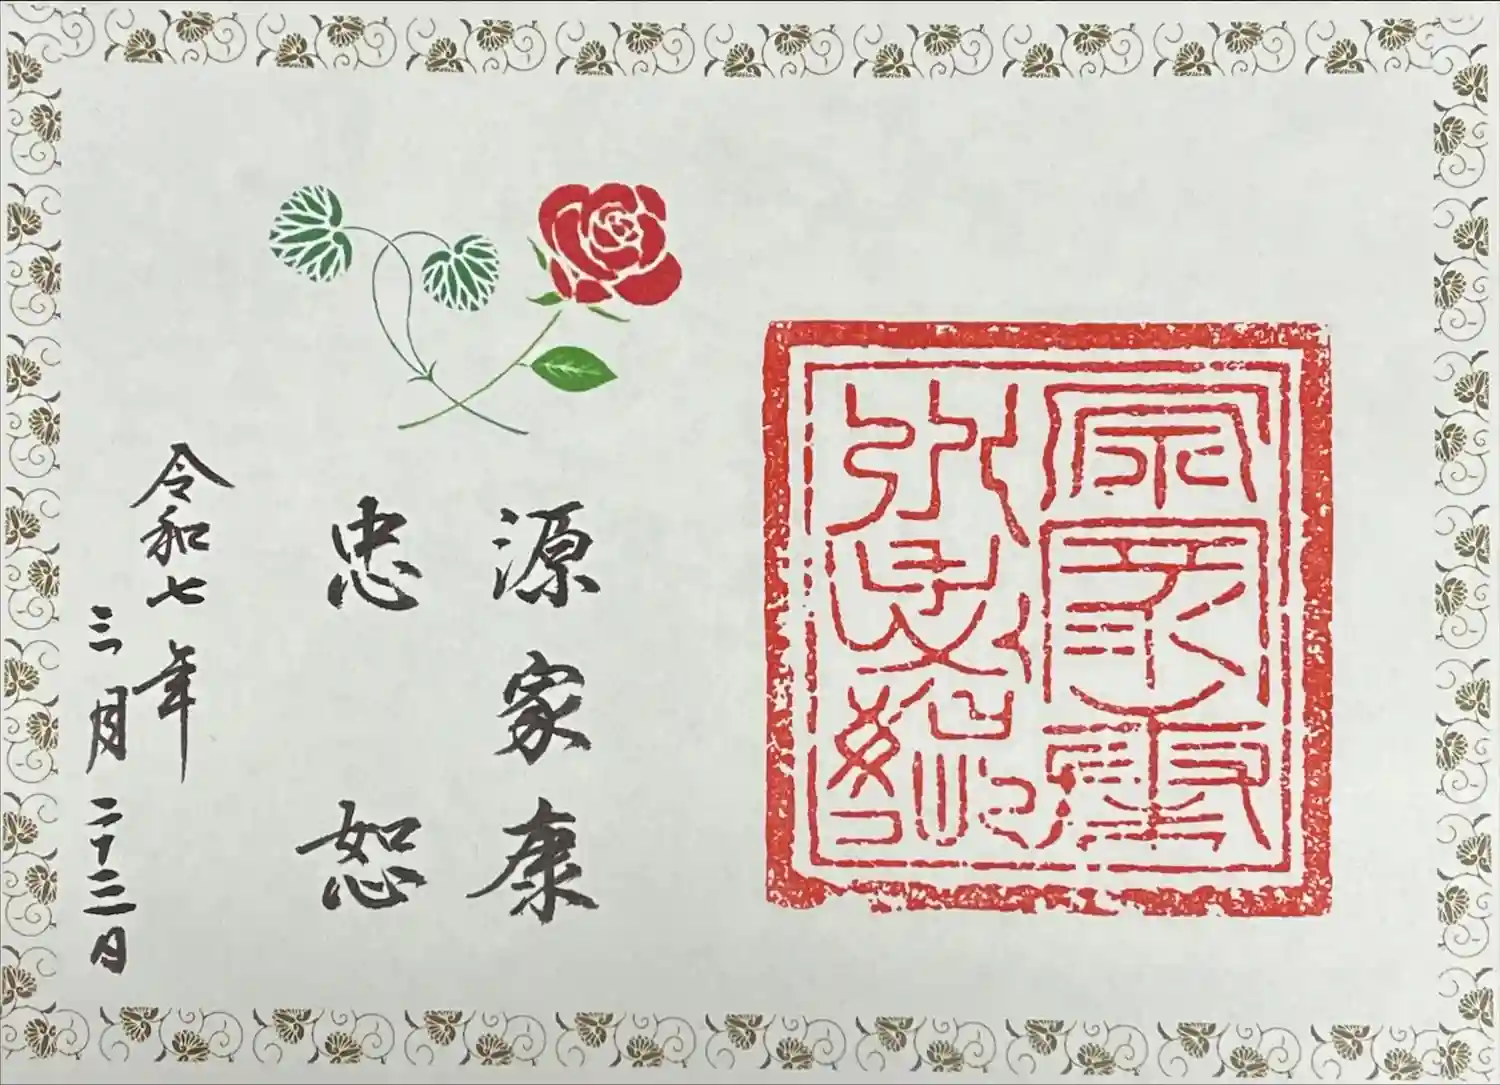 源家康
忠恕
令和七年
三月二十二日